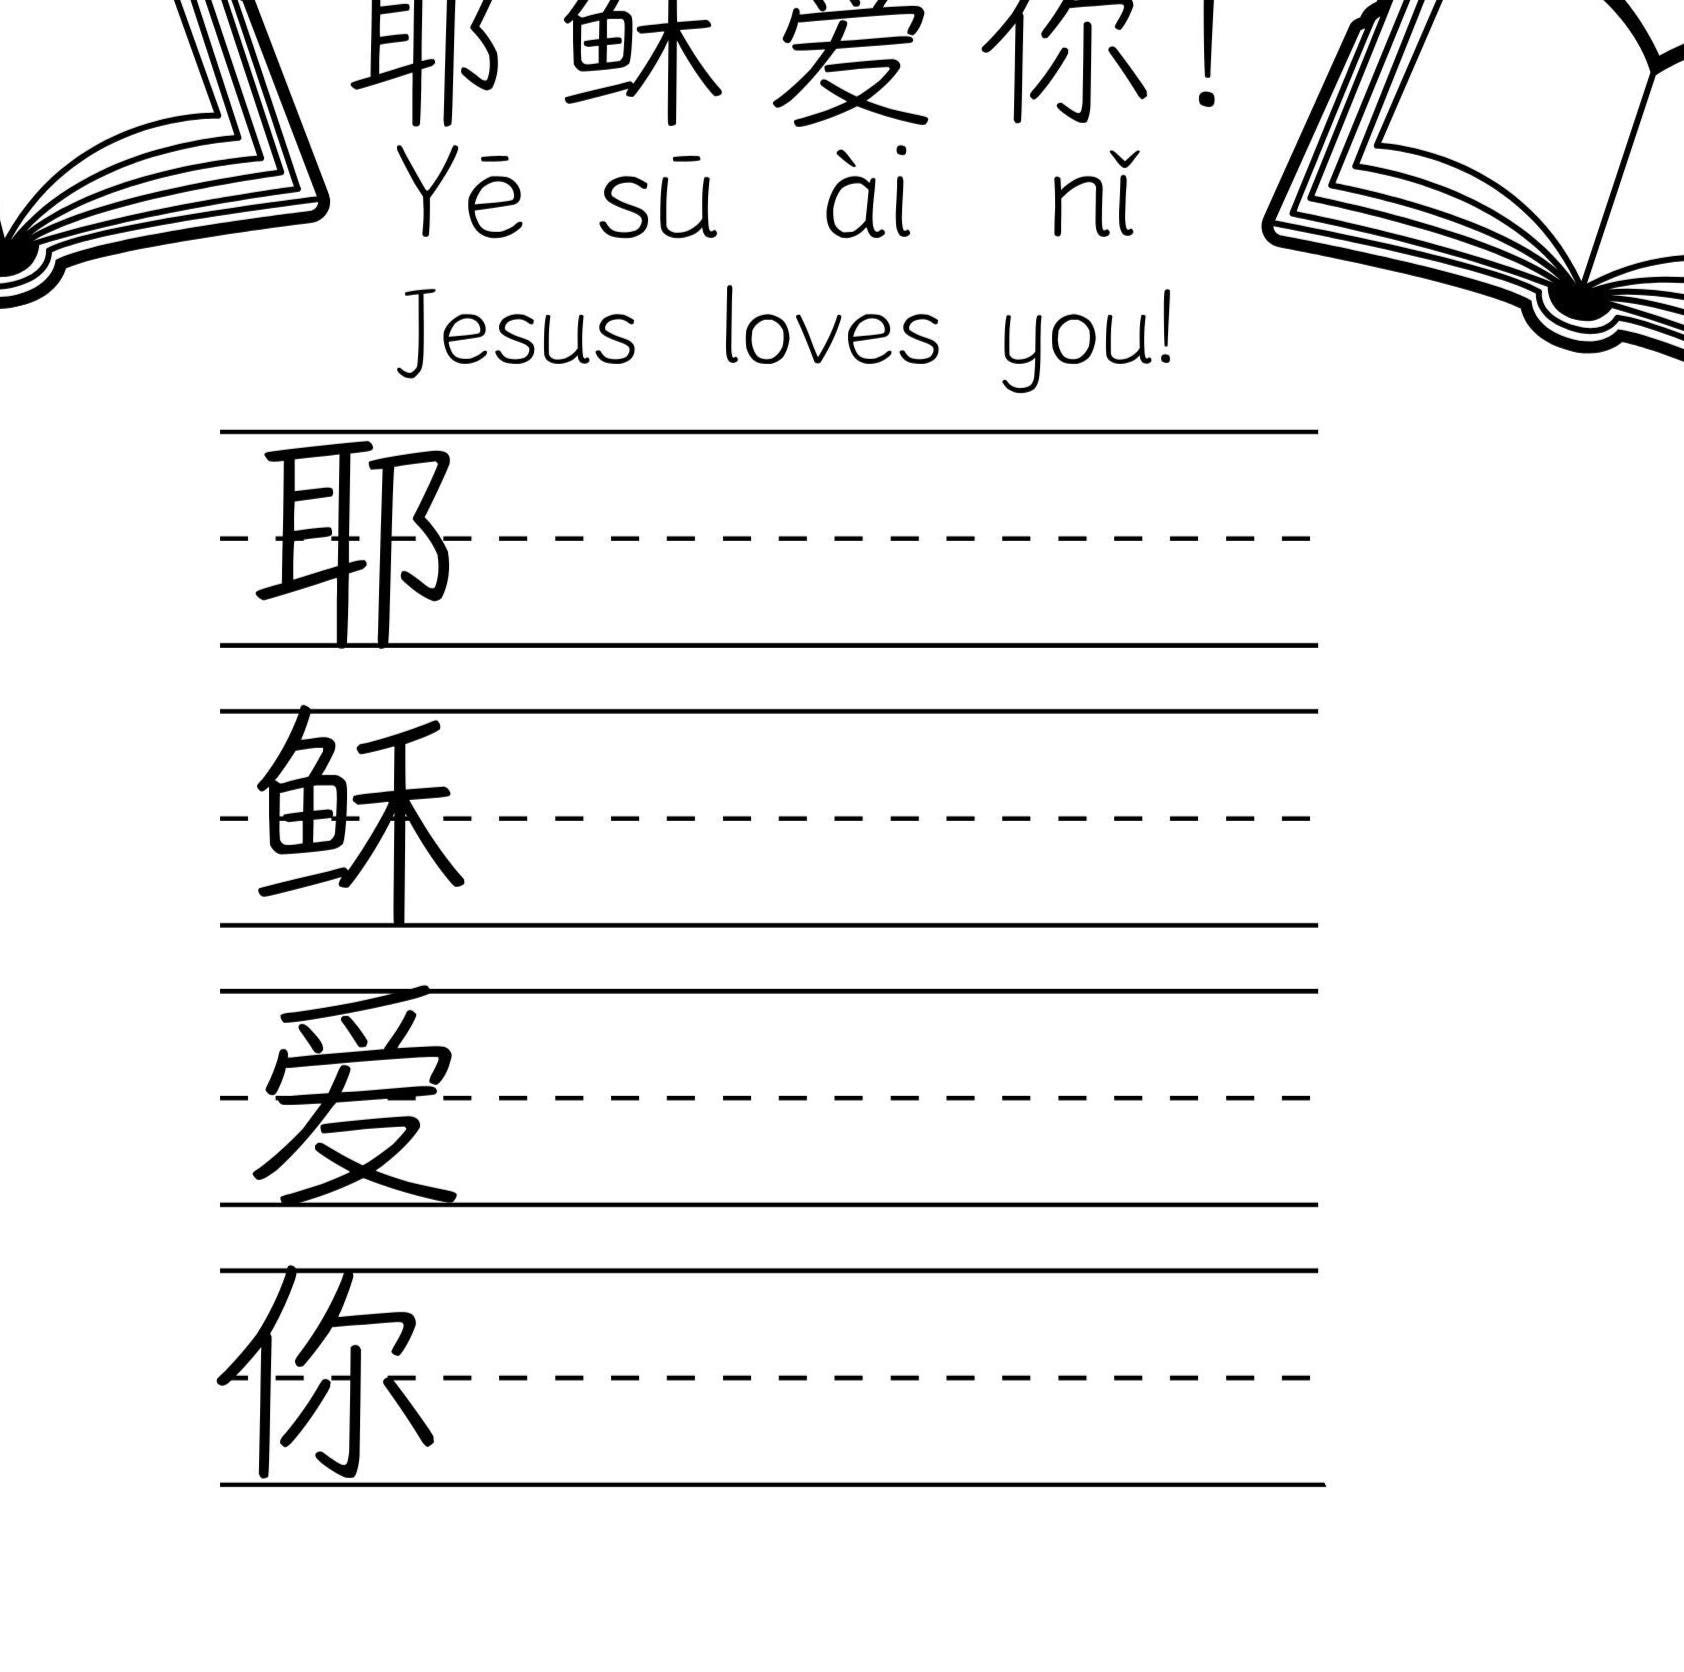 耶稣爱你!
Yē sū ài nǐ
Jesus loves you!
耶
稣
爱
你